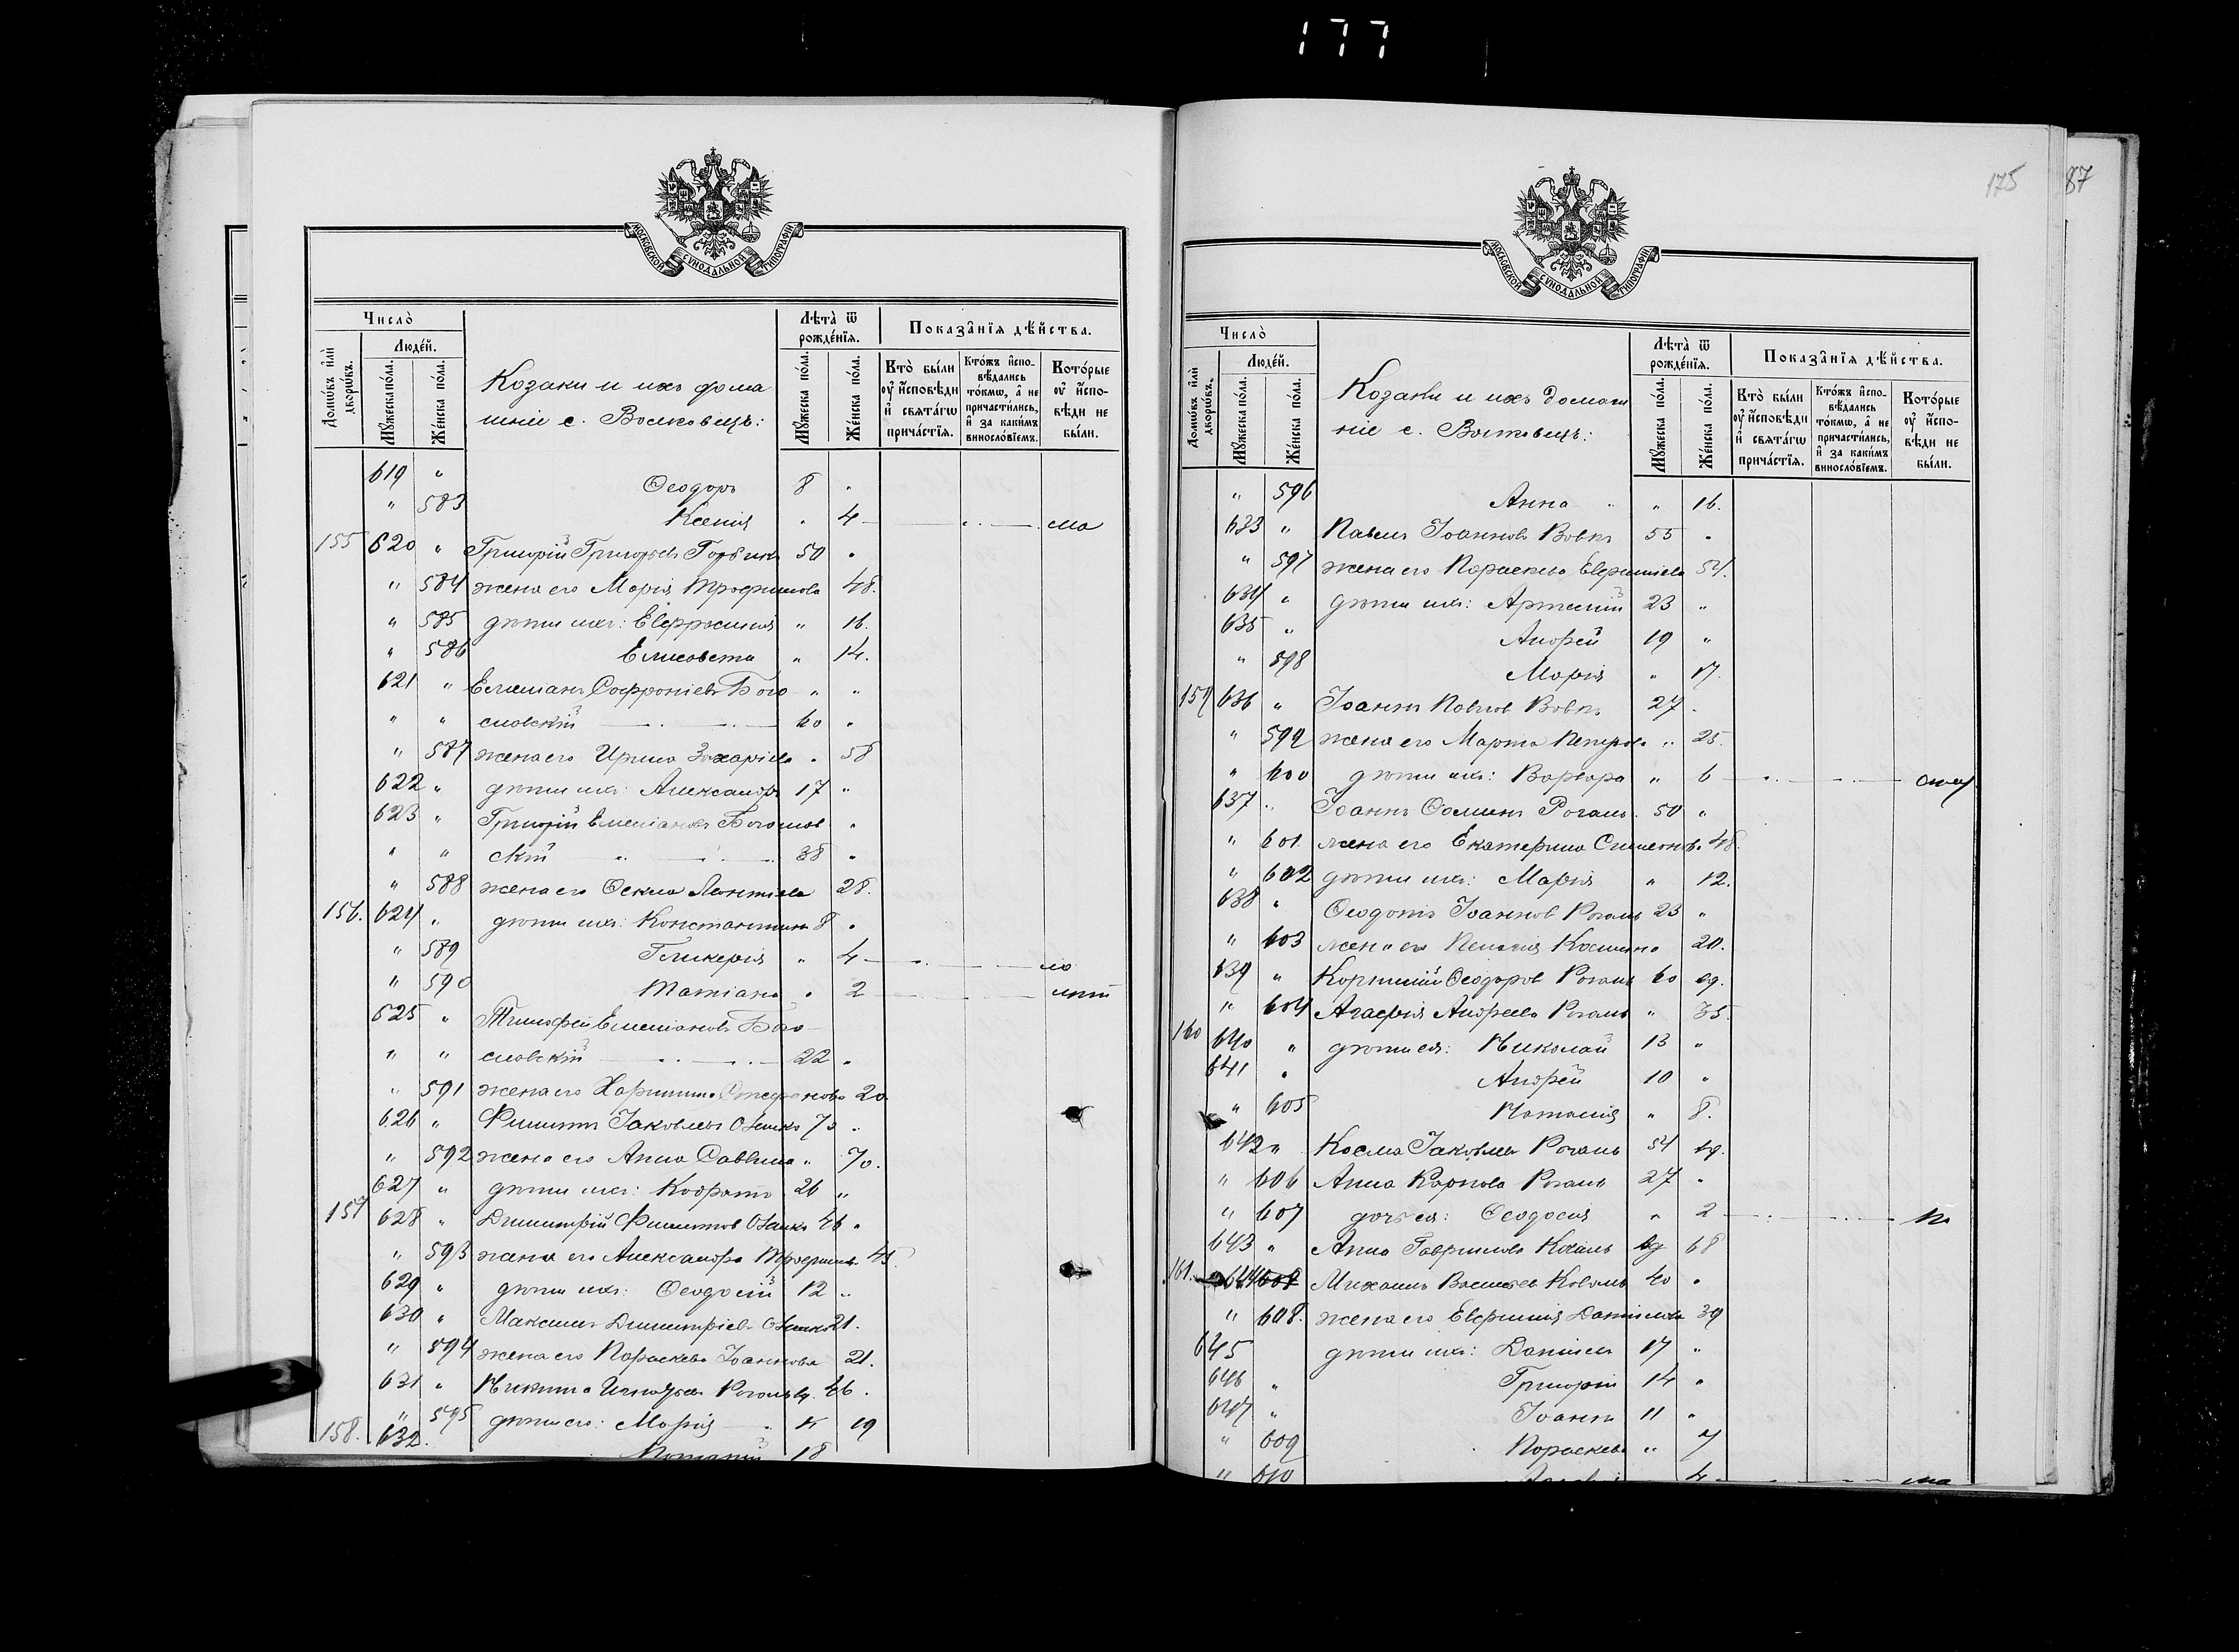 177
МОСКОВСКОЙ СУНОДАЛЬНОЙ ТИПОГРАФІИ
Число̀
Домѡ́въ и҆лѝ дворѡ́въ.
Люде́й.
Мꙋ́жеска по́ла.
Же́нска по́ла.
Козаки и ихъ дома
шніе с. Волковецъ:
Лѣта̀ ѿ рожде́нїѧ.
Мꙋ́жеска по́ла.
Же́нска по́ла.
Показа̂нїѧ дѣ́йства.
Кто̀ бы́ли оу҆ и҆́сповѣди и҆ свѧта́гѡ прича́стїѧ.
Кто́жъ и҆сповѣ́дались то́кмѡ, а҆ не причасти́лись, и҆ за каки́мъ виносло́вїемъ.
Кото́рые оу҆ и҆́сповѣди не бы́ли.
619 " Ѳеодоръ 8 "
" 583 Ксенія " 4 ма
155 620 " Григорій Григорьевъ 50 "
" 584 жена его Марія Трофимова 48.
" 585 дѣти ихъ: Евфросинія " 16.
" 586 Елисавета " 14.
621 " Емиліанъ Софроніевъ Бого " "
" " словскій 60 "
" 587 жена его Ирина Захаріева " 58
622 " дѣти ихъ: Александръ 17 "
623 " Григорій Емиліановъ Богослов "
" " скій 38 "
" 588 жена его Ѳекла Леонтіева 28.
156. 624 " дѣти ихъ: Константинъ 8 "
" 589 Гликерія " 4 ло
" 590 Татіана " 2 лѣтн
625 " Тимофей Емеліановъ Бого
" " словскій 22 "
" 591 жена его Харитина Стефанова 20
626 " Филиппъ Іаковлевъ 70 "
" 592 жена его Анна Саввина " 70.
627 " дѣти ихъ: Кодратъ 26 "
157 628 " Димитрій Филиппов 46 "
" 593 жена его Александра Трофимов. 45.
629 " дѣти ихъ: Ѳеодосій 12 "
630 " Максимъ Димитріевъ 21.
" 594 жена его Параскева Іоаннова 21.
631 " Никита Рогаль 46.
" 595 дѣти его: Марія 19
158. 632. Потапій 18
175
87
МОСКОВСКОЙ СУНОДАЛЬНОЙ ТИПОГРАФІИ
Число̀
Домѡ́въ и҆лѝ дворѡ́въ.
Люде́й.
Мꙋ́жеска по́ла.
Же́нска по́ла.
Козаки и ихъ домаш
ніе с. Волковецъ:
Лѣта̀ ѿ рожде́нїѧ.
Мꙋ́жеска по́ла.
Же́нска по́ла.
Показа̂нїѧ дѣ́йства.
Кто̀ бы́ли оу҆ и҆́сповѣди и҆ свѧта́гѡ прича́стїѧ.
Кто́жъ и҆сповѣ́дались то́кмѡ, а҆ не причасти́лись, и҆ за каки́мъ виносло́вїемъ.
Кото́рые оу҆ и҆́сповѣди не бы́ли.
" 596 Анна " 16.
633 " Павелъ Іоанновъ Вовкъ 55 "
" 597 жена его Параскева Евфиміева 54.
634 " дѣти ихъ: Артемій 23 "
635 " Андрей 19 "
" 598 Марія " 17.
159 636 " Іоаннъ Павлов Вовкъ 27 "
" 599 жена его Марта Петрова " 25.
" 600 дѣти ихъ: Варвара " 6
637 " Іоаннъ Ѳоминъ Рогаль 50 "
" 601. жена его Екатерина Симеонов. 48.
" 602 дѣти ихъ: Марія " 12.
638 " Ѳеодотъ Іоаннов Рогаль 23 "
" 603 жена его Пелагія Косьмина 20.
639 " Корнилій Ѳеодоров Рогаль 60 вд.
" 604 Агафія Андреева Рогаль " 35.
160 640 " дѣти ея: Николай 13 "
641 " Андрей 10 "
" 605 Наталія " 8.
642 " Косма Іаковлев Рогаль 54 вд.
" 606 Анна Карпова Рогаль 27 "
" 607 дочь ея: Ѳеодосія " 2
643 " Анна Гаврилова вд 68
161. 644 608 Михаилъ Васильев Коваль 40 "
" 608. жена его Евфимія Даніилова 39
645 дѣти ихъ: Даніилъ 17 "
646 " Григорій 14 "
647 " Іоаннъ 11 "
" 609 Параскева " 7
" 610 4 ма